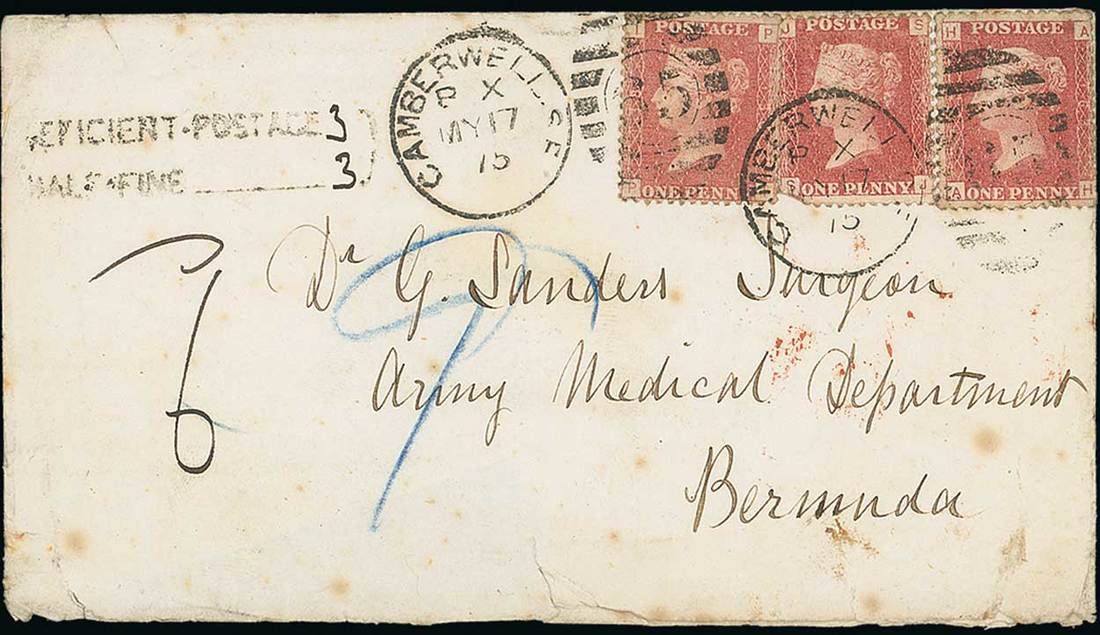 DEFICIENT·POSTAGE 3
HALF·FINE 3
CAMBERWELL S.E
P X
MY 17
75
POSTAGE
P
ONE PENNY
P
J POSTAGE S
S ONE PENNY J
H POSTAGE A
A ONE PENNY H
CAMBERWELL
P X
17
75
6
Dr G. Sanders Surgeon
Army Medical Department
Bermuda